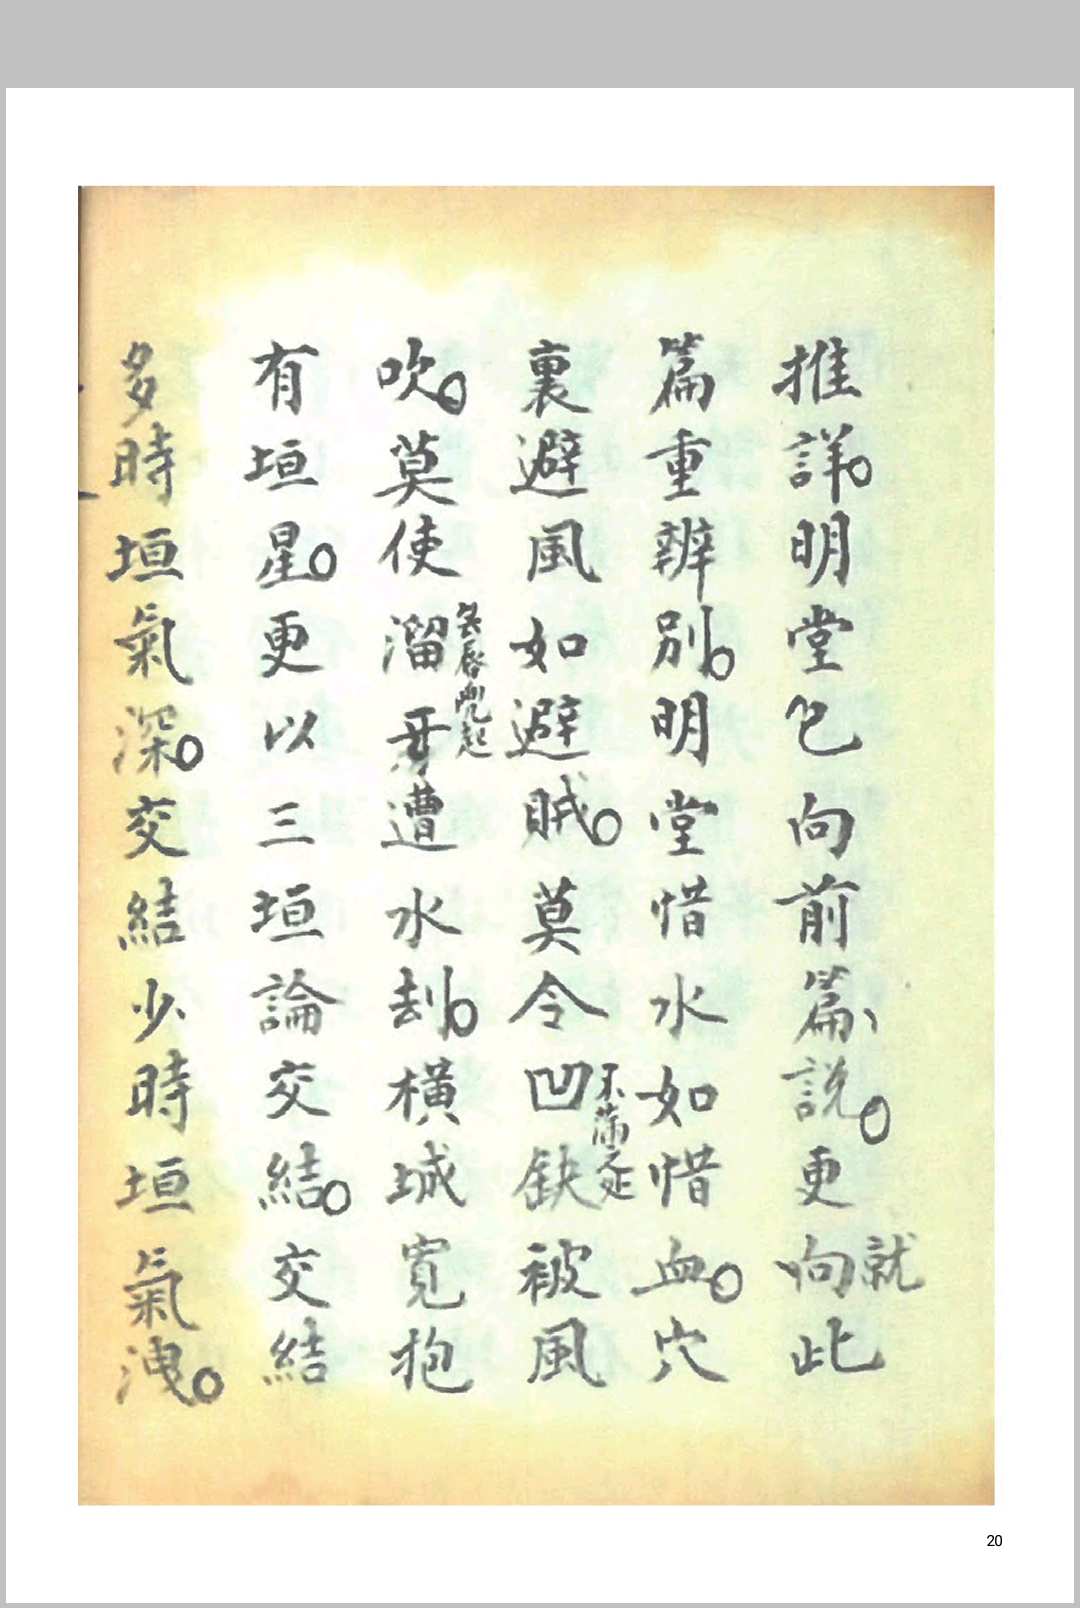 推詳。明堂已向前篇說。更向此
就
篇重辨別。明堂惜水如惜血。穴
裏避風如避賊。莫令凹缺被風
不滿足
吹。莫使溜牙遭水刦。橫城寬抱
無唇兜起
有垣星。更以三垣論交結。交結
多時垣氣深。交結少時垣氣洩。
20